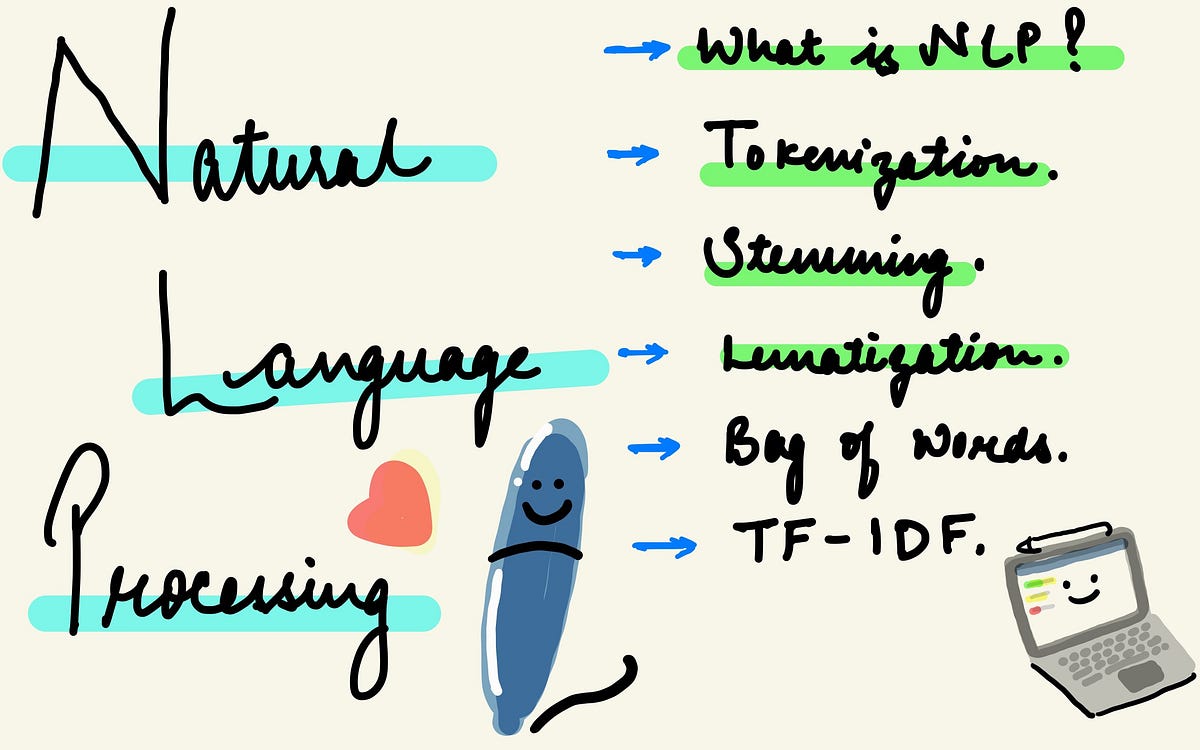 Natural
Language
Processing
What is NLP?
Tokenization.
Stemming.
Lematization.
Bag of Words.
TF-IDF.